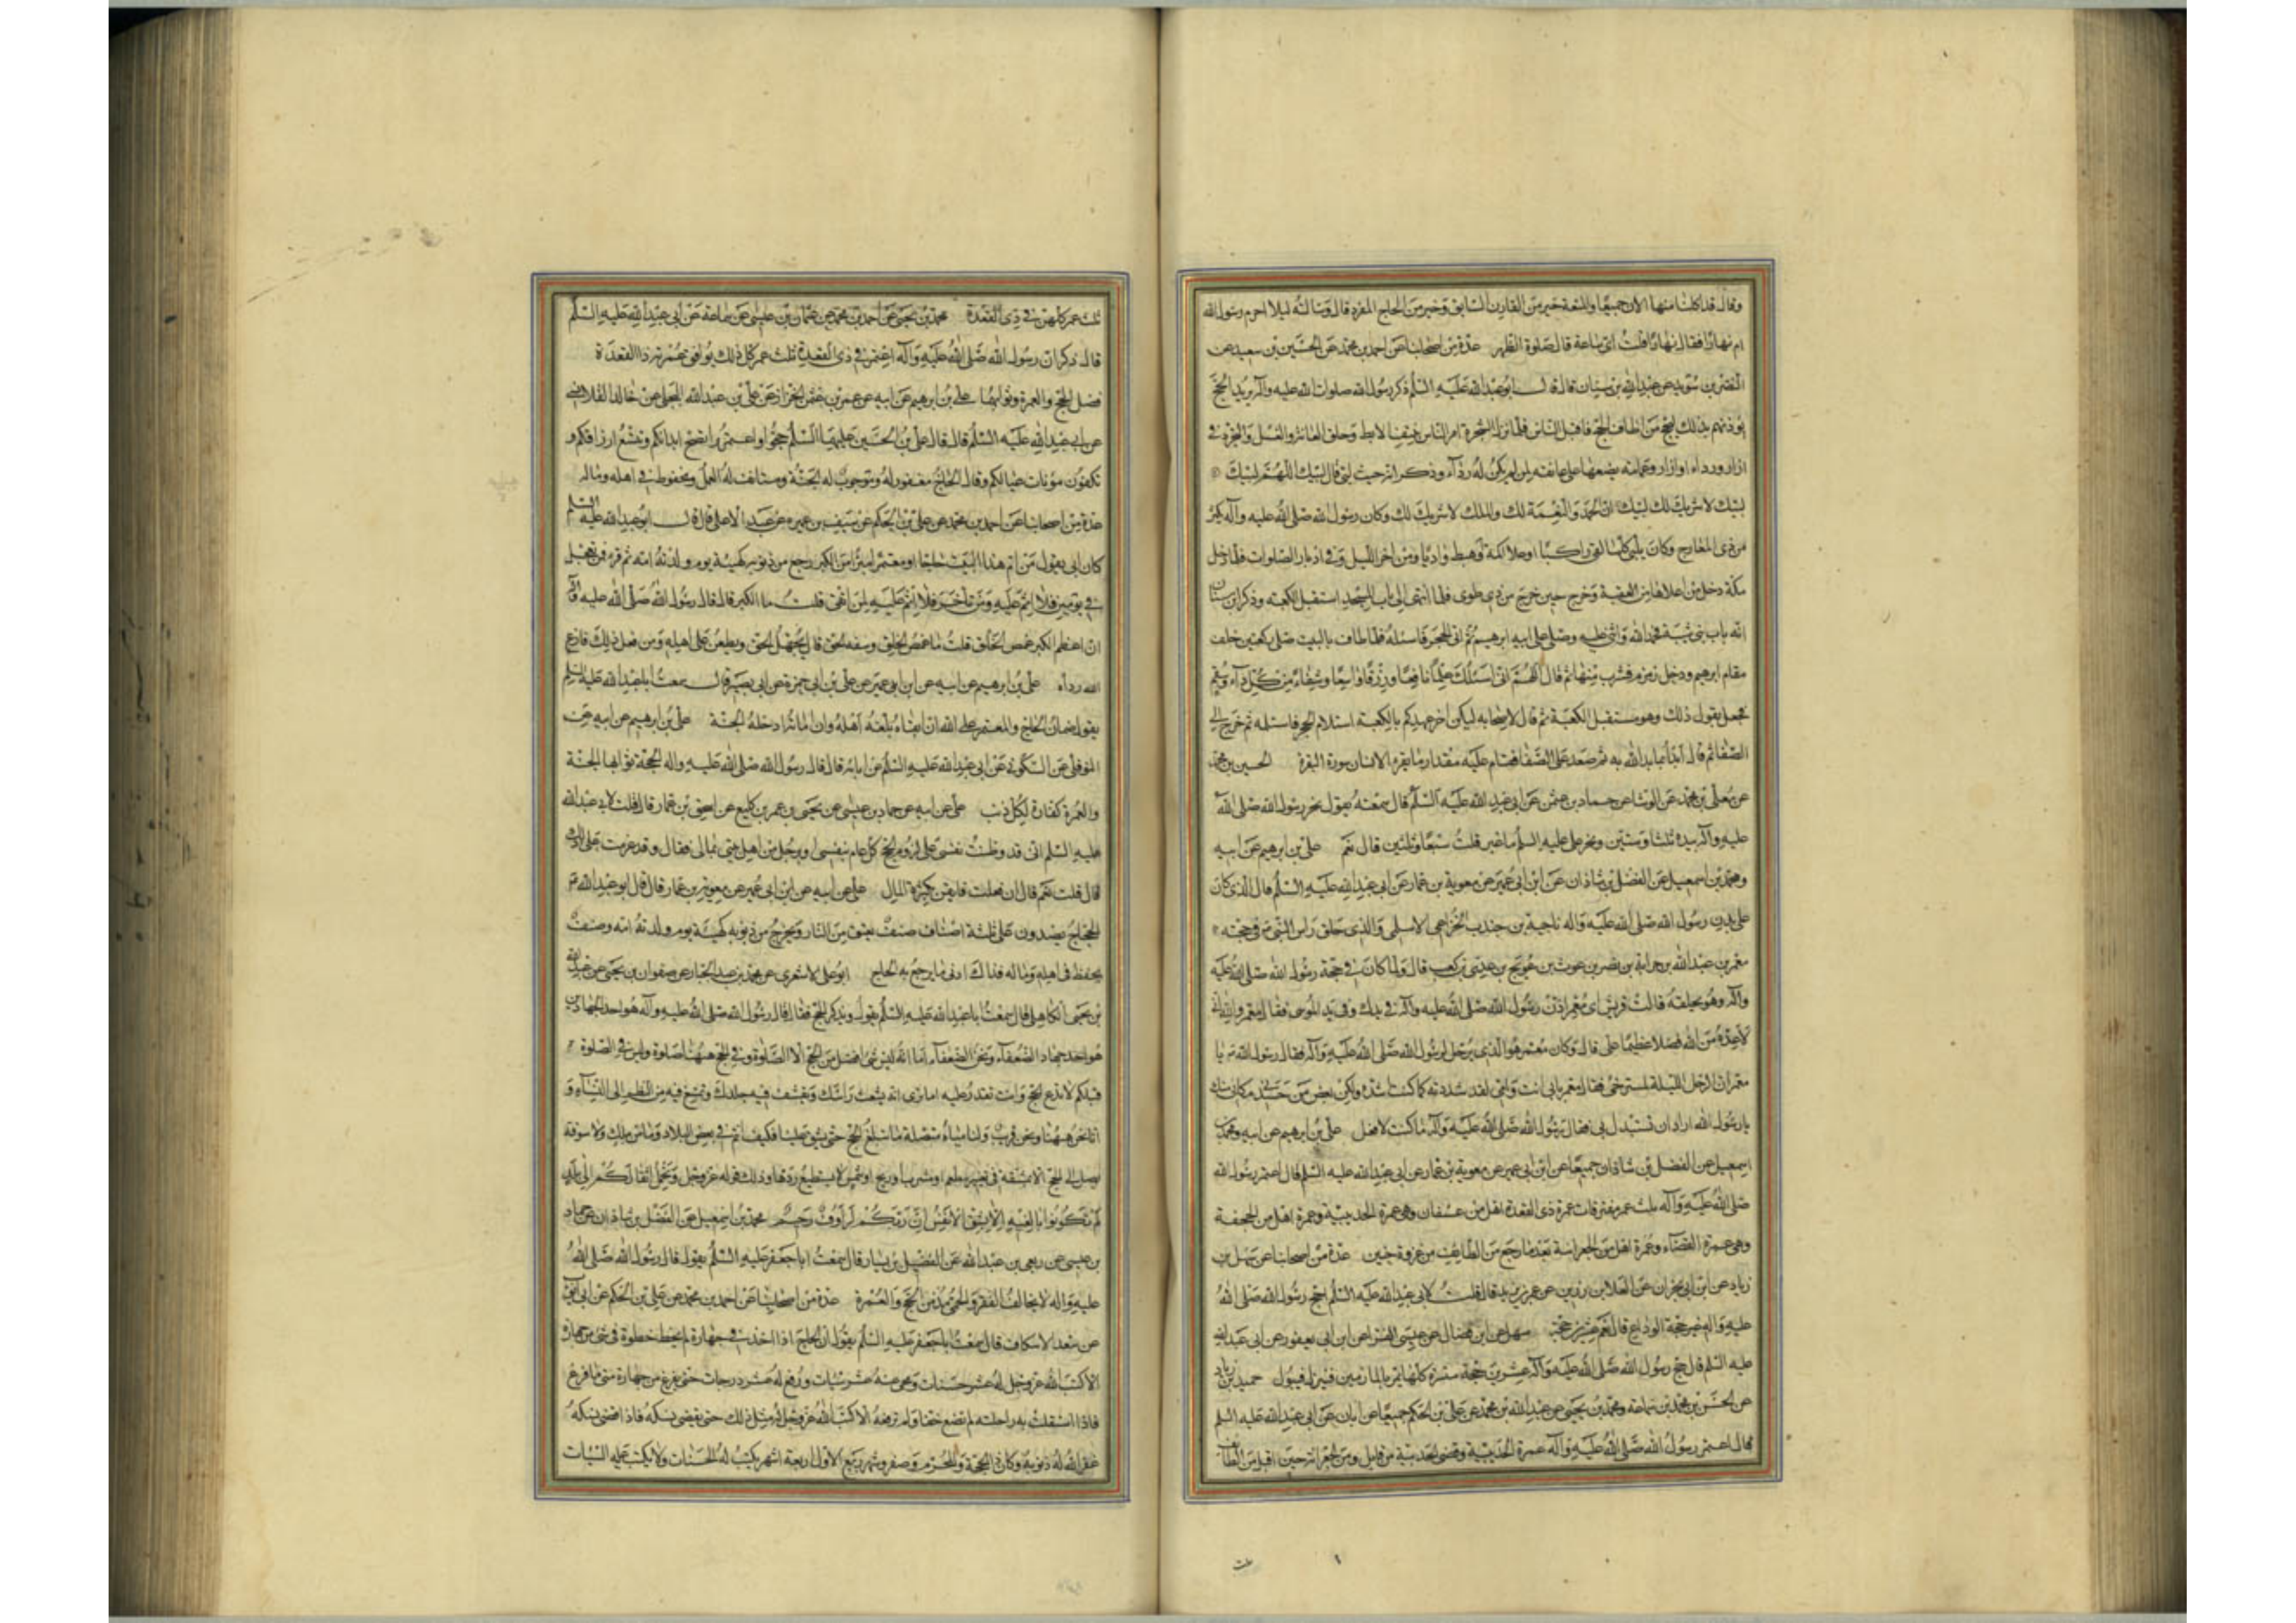 وقال قد اكلتما منها الان جميعا والمتعة خير من القارن السابق وخير من الحاج المفرد قال وسالته ليلا احرم رسول الله
ام نهارا فقال نهارا قلت اي ساعة قال صلوة الظهر عدة من اصحابنا عن احمد بن محمد عن الحسين بن سعيد عن
النضر بن سويد عن عبد الله بن سنان قال قال ابو عبد الله عليه السلم ذكر رسول الله صلوات الله عليه وآله يريد الحج
يؤذنهم بذلك ليحج من اطاق الحج فاقبل الناس فلما نزل الشجرة امر الناس بنتف الابط وحلق العانة والغسل والتجرد في
ازار ورداء او ازار وعمامة يضعها على عاتقه لمن لم يكن له رداء وذكر انه حيث لبى قال لبيك اللهم لبيك
لبيك لا شريك لك لبيك ان الحمد والنعمة لك والملك لا شريك لك وكان رسول الله صلى الله عليه وآله يكثر
من ذي المعارج وكان يلبي كلما لقي راكبا او علا اكمة او هبط واديا ومن اخر الليل وفي ادبار الصلوات فلما دخل
مكة دخل من اعلاها من العقبة وخرج حين خرج من ذي طوى فلما انتهى الى باب المسجد استقبل الكعبة وذكر ابن سنان
انه باب بني شيبة فحمد الله واثنى عليه وصلى على ابيه ابرهيم ثم اتى الحجر فاستلمه فلما طاف بالبيت صلى ركعتين خلف
مقام ابرهيم ودخل زمزم فشرب منها ثم قال اللهم اني اسئلك علما نافعا ورزقا واسعا وشفاء من كل داء وسقم
فجعل يقول ذلك وهو مستقبل الكعبة ثم قال لاصحابه ليكن اخر عهدكم بالكعبة استلام الحجر فاستلمه ثم خرج الى
الصفا ثم قال ابدأ بما بدا الله به ثم صعد على الصفا فقام عليه مقدار ما يقرء الانسان سورة البقرة الحسين بن محمد
عن معلى بن محمد عن الوشا عن حماد بن عثمن عن ابي عبد الله عليه السلم قال سمعته يقول نحر رسول الله صلى الله
عليه وآله بيده ثلثا وستين ونحر علي عليه السلم ما غبر قلت سبعا وثلثين قال نعم علي بن ابرهيم عن ابيه
ومحمد بن اسمعيل عن الفضل بن شاذان عن ابن ابي عمير عن معوية بن عمار عن ابي عبد الله عليه السلم قال الذي كان
على بدن رسول الله صلى الله عليه وآله ناجية بن جندب الخزاعي الاسلمي والذي حلق راس النبي ص في حجته
معمر بن عبد الله بن حراثة بن نصر بن عوث بن عويج بن عدي بن كعب قال ولما كان في حجة رسول الله صلى الله عليه
وآله وهو يحلقه قالت قريش اي معمر اذن رسول الله صلى الله عليه وآله في يدك وفي يدك الموسى فقال معمر والله اني
لاعده من الله فضلا عظيما علي قال وكان معمر هو الذي يرحل لرسول الله صلى الله عليه وآله فقال رسول الله ص يا
معمر ان الرحل الليلة لمسترخى فقال معمر بابي انت وامي لقد شددته كما كنت اشده ولكن بعض من حسدني مكاني منك
يا رسول الله اراد ان تستبدل بي فقال رسول الله صلى الله عليه وآله ما كنت لافعل علي بن ابرهيم عن ابيه ومحمد بن
اسمعيل عن الفضل بن شاذان جميعا عن ابن ابي عمير عن معوية بن عمار عن ابي عبد الله عليه السلم قال اعتمر رسول الله
صلى الله عليه وآله ثلث عمر مفترقات عمرة ذي القعدة اهل من عسفان وهي عمرة الحديبية وعمرة اهل من الجحفة
وهي عمرة القضاء وعمرة اهل من الجعرانة بعد ما رجع من الطايف من غزوة حنين عدة من اصحابنا عن سهل بن
زياد عن ابن ابي نجران عن العلا بن رزين عن عمر بن يزيد قال قلت لابي عبد الله عليه السلم احج رسول الله صلى الله
عليه وآله غير حجة الوداع قال نعم عشرين حجة سهل عن ابن فضال عن عيسى الفرا عن ابن ابي يعفور عن ابي عبد الله
عليه السلم قال حج رسول الله صلى الله عليه وآله عشرين حجة مستترة كلها يمر بالمازمين فينزل فيبول حميد بن زياد
عن الحسن بن محمد بن سماعة ومحمد بن يحيى عن عبد الله بن محمد عن علي بن الحكم جميعا عن ابان عن ابي عبد الله عليه السلم
قال اعتمر رسول الله صلى الله عليه وآله عمرة الحديبية وقضى الحديبية من قابل ومن الجعرانة حين اقبل من الطائف
ثلث عمر كلهن في ذي القعدة محمد بن يحيى عن احمد بن محمد عن عثمان بن عيسى عن سماعة عن ابي عبد الله عليه السلم
قال ذكر ان رسول الله صلى الله عليه وآله اعتمر في ذي القعدة ثلث عمر كل ذلك يوافق عمرته ذا القعدة
فضل الحج والعمرة وثوابهما علي بن ابرهيم عن ابيه عن عمر بن عثمن الخزاز عن علي بن عبد الله البجلي عن خالد القلانسي
عن ابي عبد الله عليه السلم قال قال علي بن الحسين عليهما السلم حجوا واعتمروا تصح ابدانكم وتتسع ارزاقكم و
تكفون مؤنات عيالكم وقال الحاج مغفور له وموجوب له الجنة ومستانف له العمل ومحفوظ في اهله وماله
عدة من اصحابنا عن احمد بن محمد عن علي بن الحكم عن سيف بن عميرة عن عبد الاعلى قال قال ابو عبد الله عليه السلم
كان ابي يقول من ام هذا البيت حاجا او معتمرا مبرأ من الكبر رجع من ذنوبه كهيئة يوم ولدته امه ثم قرء فمن تعجل
في يومين فلا اثم عليه ومن تاخر فلا اثم عليه لمن اتقى قلت ما الكبر قال قال رسول الله صلى الله عليه وآله
ان اعظم الكبر غمص الخلق وسفه الحق قلت ما غمص الخلق وسفه الحق قال يجهل الحق ويطعن على اهله ومن فعل ذلك نازع
الله رداه علي بن ابرهيم عن ابيه عن ابن ابي عمير عن علي بن ابي حمزة عن ابي بصير قال سمعت ابا عبد الله عليه السلم
يقول ضمان الحاج والمعتمر على الله ان ابقاه بلغه اهله وان اماته ادخله الجنة علي بن ابرهيم عن ابيه عن
النوفلي عن السكوني عن ابي عبد الله عليه السلم عن ابائه قال قال رسول الله صلى الله عليه وآله الحجة ثوابها الجنة
والعمرة كفارة لكل ذنب علي عن ابيه عن حماد بن عيسى عن يحيى بن عمر بن كليع عن اسحق بن عمار قال قلت لابي عبد الله
عليه السلم اني قد وطنت نفسي على لزوم الحج كل عام بنفسي او برجل من اهل بيتي بمالي فقال وقد عزمت على ذلك
قال قلت نعم قال ان فعلت فايقن بكثرة المال علي عن ابيه عن ابن ابي عمير عن معوية بن عمار قال قال ابو عبد الله ع
الحجاج يصدرون على ثلثة اصناف صنف يعتق من النار وصنف يخرج من ذنوبه كهيئة يوم ولدته امه وصنف
يحفظ في اهله وماله فذاك ادنى ما يرجع به الحاج ابو علي الاشعري عن محمد بن عبد الجبار عن صفوان بن يحيى عن عبد الله
بن يحيى الكاهلي قال سمعت ابا عبد الله عليه السلم يقول ويذكر الحج فقال قال رسول الله صلى الله عليه وآله هو احد الجهادين
هو احد جهاد الضعفاء ونحن الضعفاء اما انه ليس شئ افضل من الحج الا الصلوة وفي الحج ههنا صلوة وليس في الصلوة
قبلكم لا تدع الحج وانت تقدر عليه اما ترى انه يشعث راسك ويقشف فيه جلدك وتمتنع فيه من النظر الى النساء و
انا نحن ههنا ونحن قريب ولنا مياه متصلة ما نبلغ الحج حتى يشق علينا فكيف انتم في بعد البلاد وما من ملك ولا سوقة
يصل الى الحج الا بمشقة في تغيير مطعم او مشرب او ريح او شمس لا يستطيع ردها وذلك قوله عز وجل وتحمل اثقالكم الى بلد
لم تكونوا بالغيه الا بشق الانفس ان ربكم لرؤوف رحيم محمد بن اسمعيل عن الفضل بن شاذان عن حماد
بن عيسى عن ربعي بن عبد الله عن الفضيل بن يسار قال سمعت ابا جعفر عليه السلم يقول قال رسول الله صلى الله
عليه وآله لا يخالف الفقر والحمى مدمن الحج والعمرة عدة من اصحابنا عن احمد بن محمد عن علي بن الحكم عن ابي ايوب
عن سعد الاسكاف قال سمعت ابا جعفر عليه السلم يقول ان الحاج اذا اخذ في جهازه لم يخط خطوة في شئ من جهازه
الا كتب الله عز وجل له عشر حسنات ومحى عنه عشر سيئات ورفع له عشر درجات حتى يفرغ من جهازه متى ما فرغ
فاذا استقلت به راحلته لم تضع خفا ولم ترفعه الا كتب الله عز وجل له مثل ذلك حتى يقضي نسكه فاذا قضى نسكه
غفر الله له ذنوبه وكان ذا الحجة والمحرم وصفر وشهر ربيع الاول اربعة اشهر يكتب له الحسنات ولا يكتب عليه السيئات